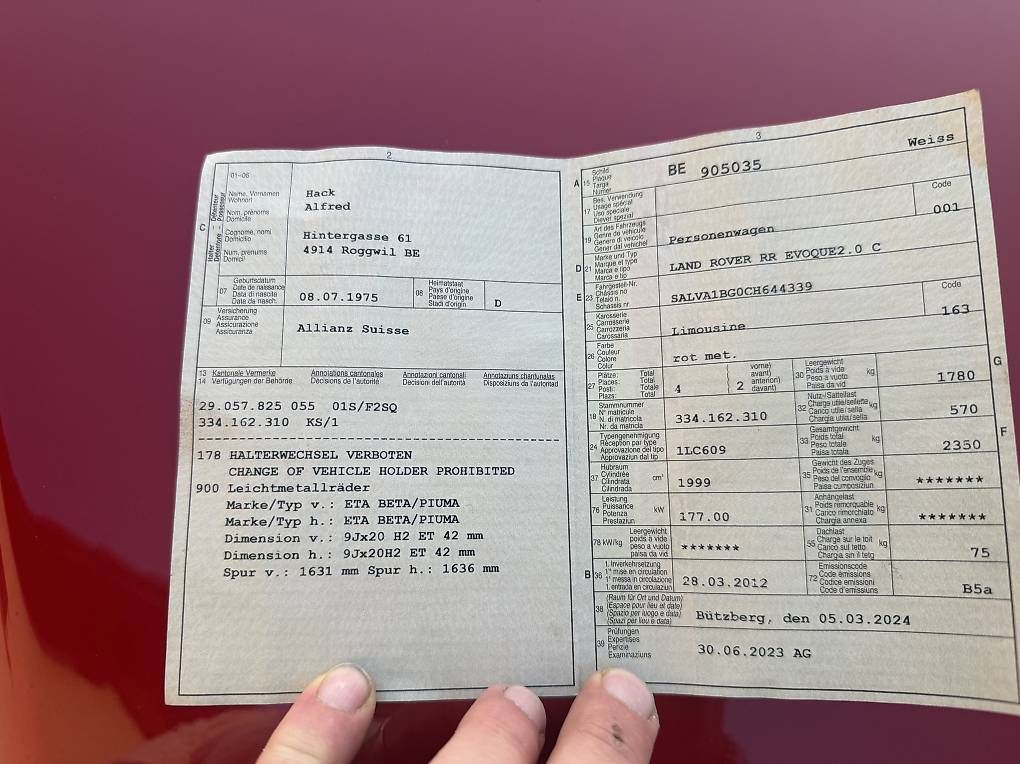 2
01-06
Name, Vornamen
Wohnort
Nom, prénoms
Domicile
Cognome, nomi
Domicilio
Num, prenums
Domicil
C
Hack
Alfred
Hintergasse 61
4914 Roggwil BE
07
Geburtsdatum
Date de naissance
Data di nascita
Data da nasch.
08.07.1975
08
Heimatstaat
Pays d'origine
Paese d'origine
Stadi d'origin
D
09
Versicherung
Assurance
Assicurazione
Assicuranza
Allianz Suisse
13 Kantonale Vermerke Annotations cantonales Annotazioni cantonali Annotaziuns chantunalas
14 Verfügungen der Behörde Décisions de l'autorité Decisioni dell'autorità Disposiziuns da l'autoritad
29.057.825 055 01S/F2SQ
334.162.310 KS/1
178 HALTERWECHSEL VERBOTEN
CHANGE OF VEHICLE HOLDER PROHIBITED
900 Leichtmetallräder
Marke/Typ v.: ETA BETA/PIUMA
Marke/Typ h.: ETA BETA/PIUMA
Dimension v.: 9Jx20 H2 ET 42 mm
Dimension h.: 9Jx20H2 ET 42 mm
Spur v.: 1631 mm Spur h.: 1636 mm
3
A 15
Schild
Plaque
Targa
Numer
BE 905035 Weiss
17
Bes. Verwendung
Usage spécial
Uso speciale
Diever spezial
Code
001
19
Art des Fahrzeugs
Genre de véhicule
Genere di veicolo
Gener dal vehichel
Personenwagen
D 21
Marke und Typ
Marque et type
Marca e tipo
Marca e tip
LAND ROVER RR EVOQUE2.0 C
E 23
Fahrgestell-Nr.
Châssis no
Telaio n.
Schassis nr
SALVA1BG0CH644339
25
Karosserie
Carrosserie
Carrozzeria
Carossaria
Limousine
Code
163
26
Farbe
Couleur
Colore
Colur
rot met.
27
Plätze: Total
Places: Total
Posti: Totale
Plazs: Total
4
vorne)
avant)
anteriori)
davant)
2
30
Leergewicht
Poids à vide
Peso a vuoto
Paisa da vid
kg
1780
G
18
Stammnummer
N° matricule
N. di matricola
Nr. da matricla
334.162.310
32
Nutz-/Sattellast
Charge utile/sellette
Carico utile/sella
Chargia utila/sella
kg
570
24
Typengenehmigung
Réception par type
Approvazione del tipo
Approvaziun dal tip
1LC609
33
Gesamtgewicht
Poids total
Peso totale
Paisa totala
kg
2350
F
37
Hubraum
Cylindrée
Cilindrata
Cilindrada
cm³
1999
35
Gewicht des Zuges
Poids de l'ensemble
Peso del convoglio
Paisa cumposiziun
kg
*******
76
Leistung
Puissance
Potenza
Prestaziun
kW
177.00
31
Anhängelast
Poids remorquable
Carico rimorchiato
Chargia annexa
kg
*******
78 kW/kg
Leergewicht
poids à vide
peso a vuoto
paisa da vid
*******
55
Dachlast
Charge sur le toit
Carico sul tetto
Chargia sin il tetg
kg
75
B 36
1. Inverkehrsetzung
1re mise en circulation
1a messa in circolazione
1. entrada en circulaziun
28.03.2012
72
Emissionscode
Code émissions
Codice emissioni
Code d'emissiuns
B5a
38
(Raum für Ort und Datum)
(Espace pour lieu et date)
(Spazio per luogo e data)
(Spazi per lieu e data)
Bützberg, den 05.03.2024
39
Prüfungen
Expertises
Perizie
Examinaziuns
30.06.2023 AG